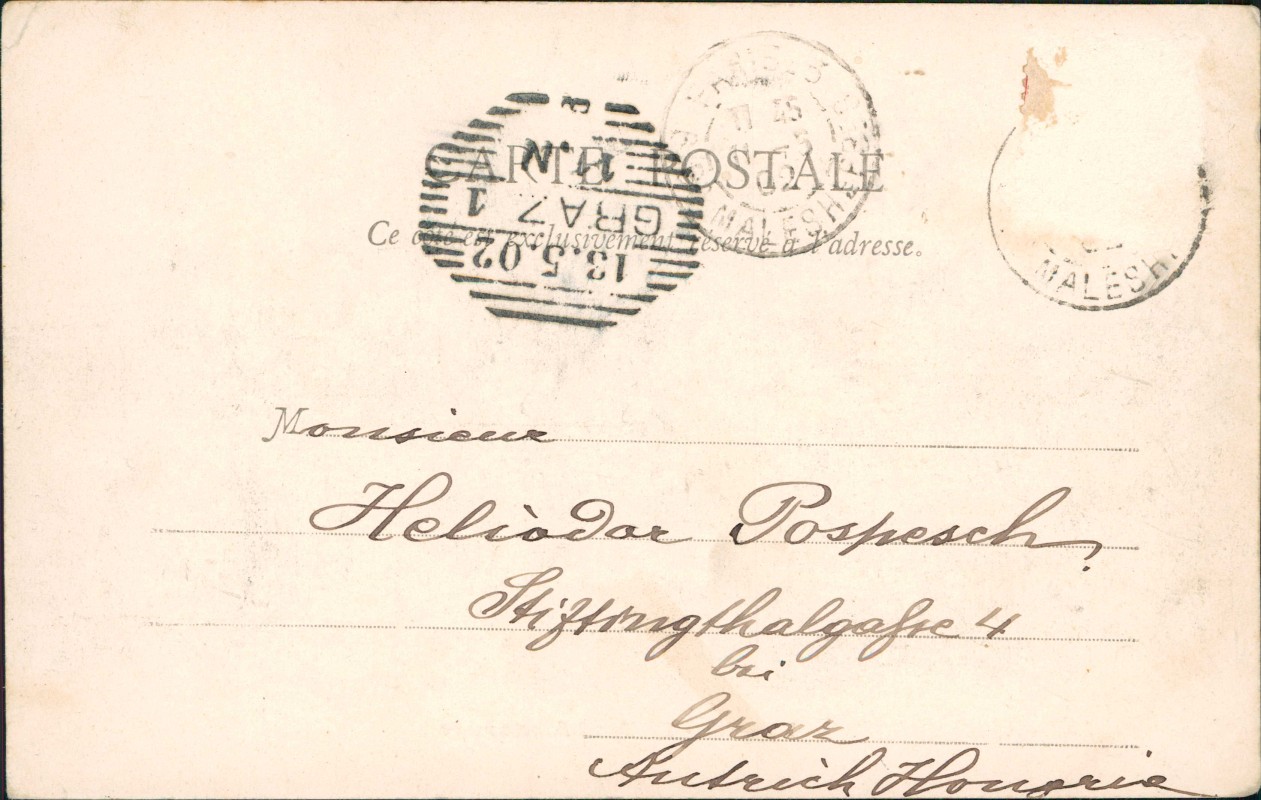 CARTE POSTALE
Ce côté est exclusivement réservé à l'adresse.
PARIS. 3
17 45
5
02
MALESHERBES
1.N
GRAZ 1
13.5.02
MALESH.
Monsieur
Heliodor Pospesch,
Stiftingthalgasse 4
bei
Graz
Autrich Hongrie